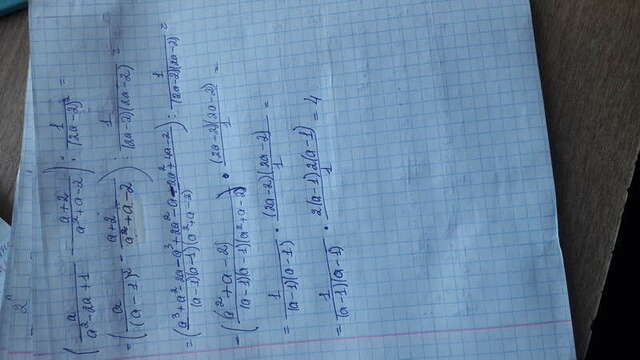 2ⁿ
( a / (a² - 2a + 1) - (a+2) / (a² + a - 2) ) : 1 / (2a-2)² =
= ( a / (a-1)² - (a+2) / (a² + a - 2) ) : 1 / (2a-2)(2a-2) =
= ( (a³ + a² - 2a - a³ + 2a² - a - 2a² + 4a - 2) / (a-1)(a-1)(a² + a - 2) ) : 1 / (2a-2)(2a-2) =
= ( (a² + a - 2) / (a-1)(a-1)(a² + a - 2) ) · (2a-2)(2a-2) / 1 =
= 1 / (a-1)(a-1) · (2a-2)(2a-2) / 1 =
= 1 / (a-1)(a-1) · 2(a-1) 2(a-1) / 1 = 4